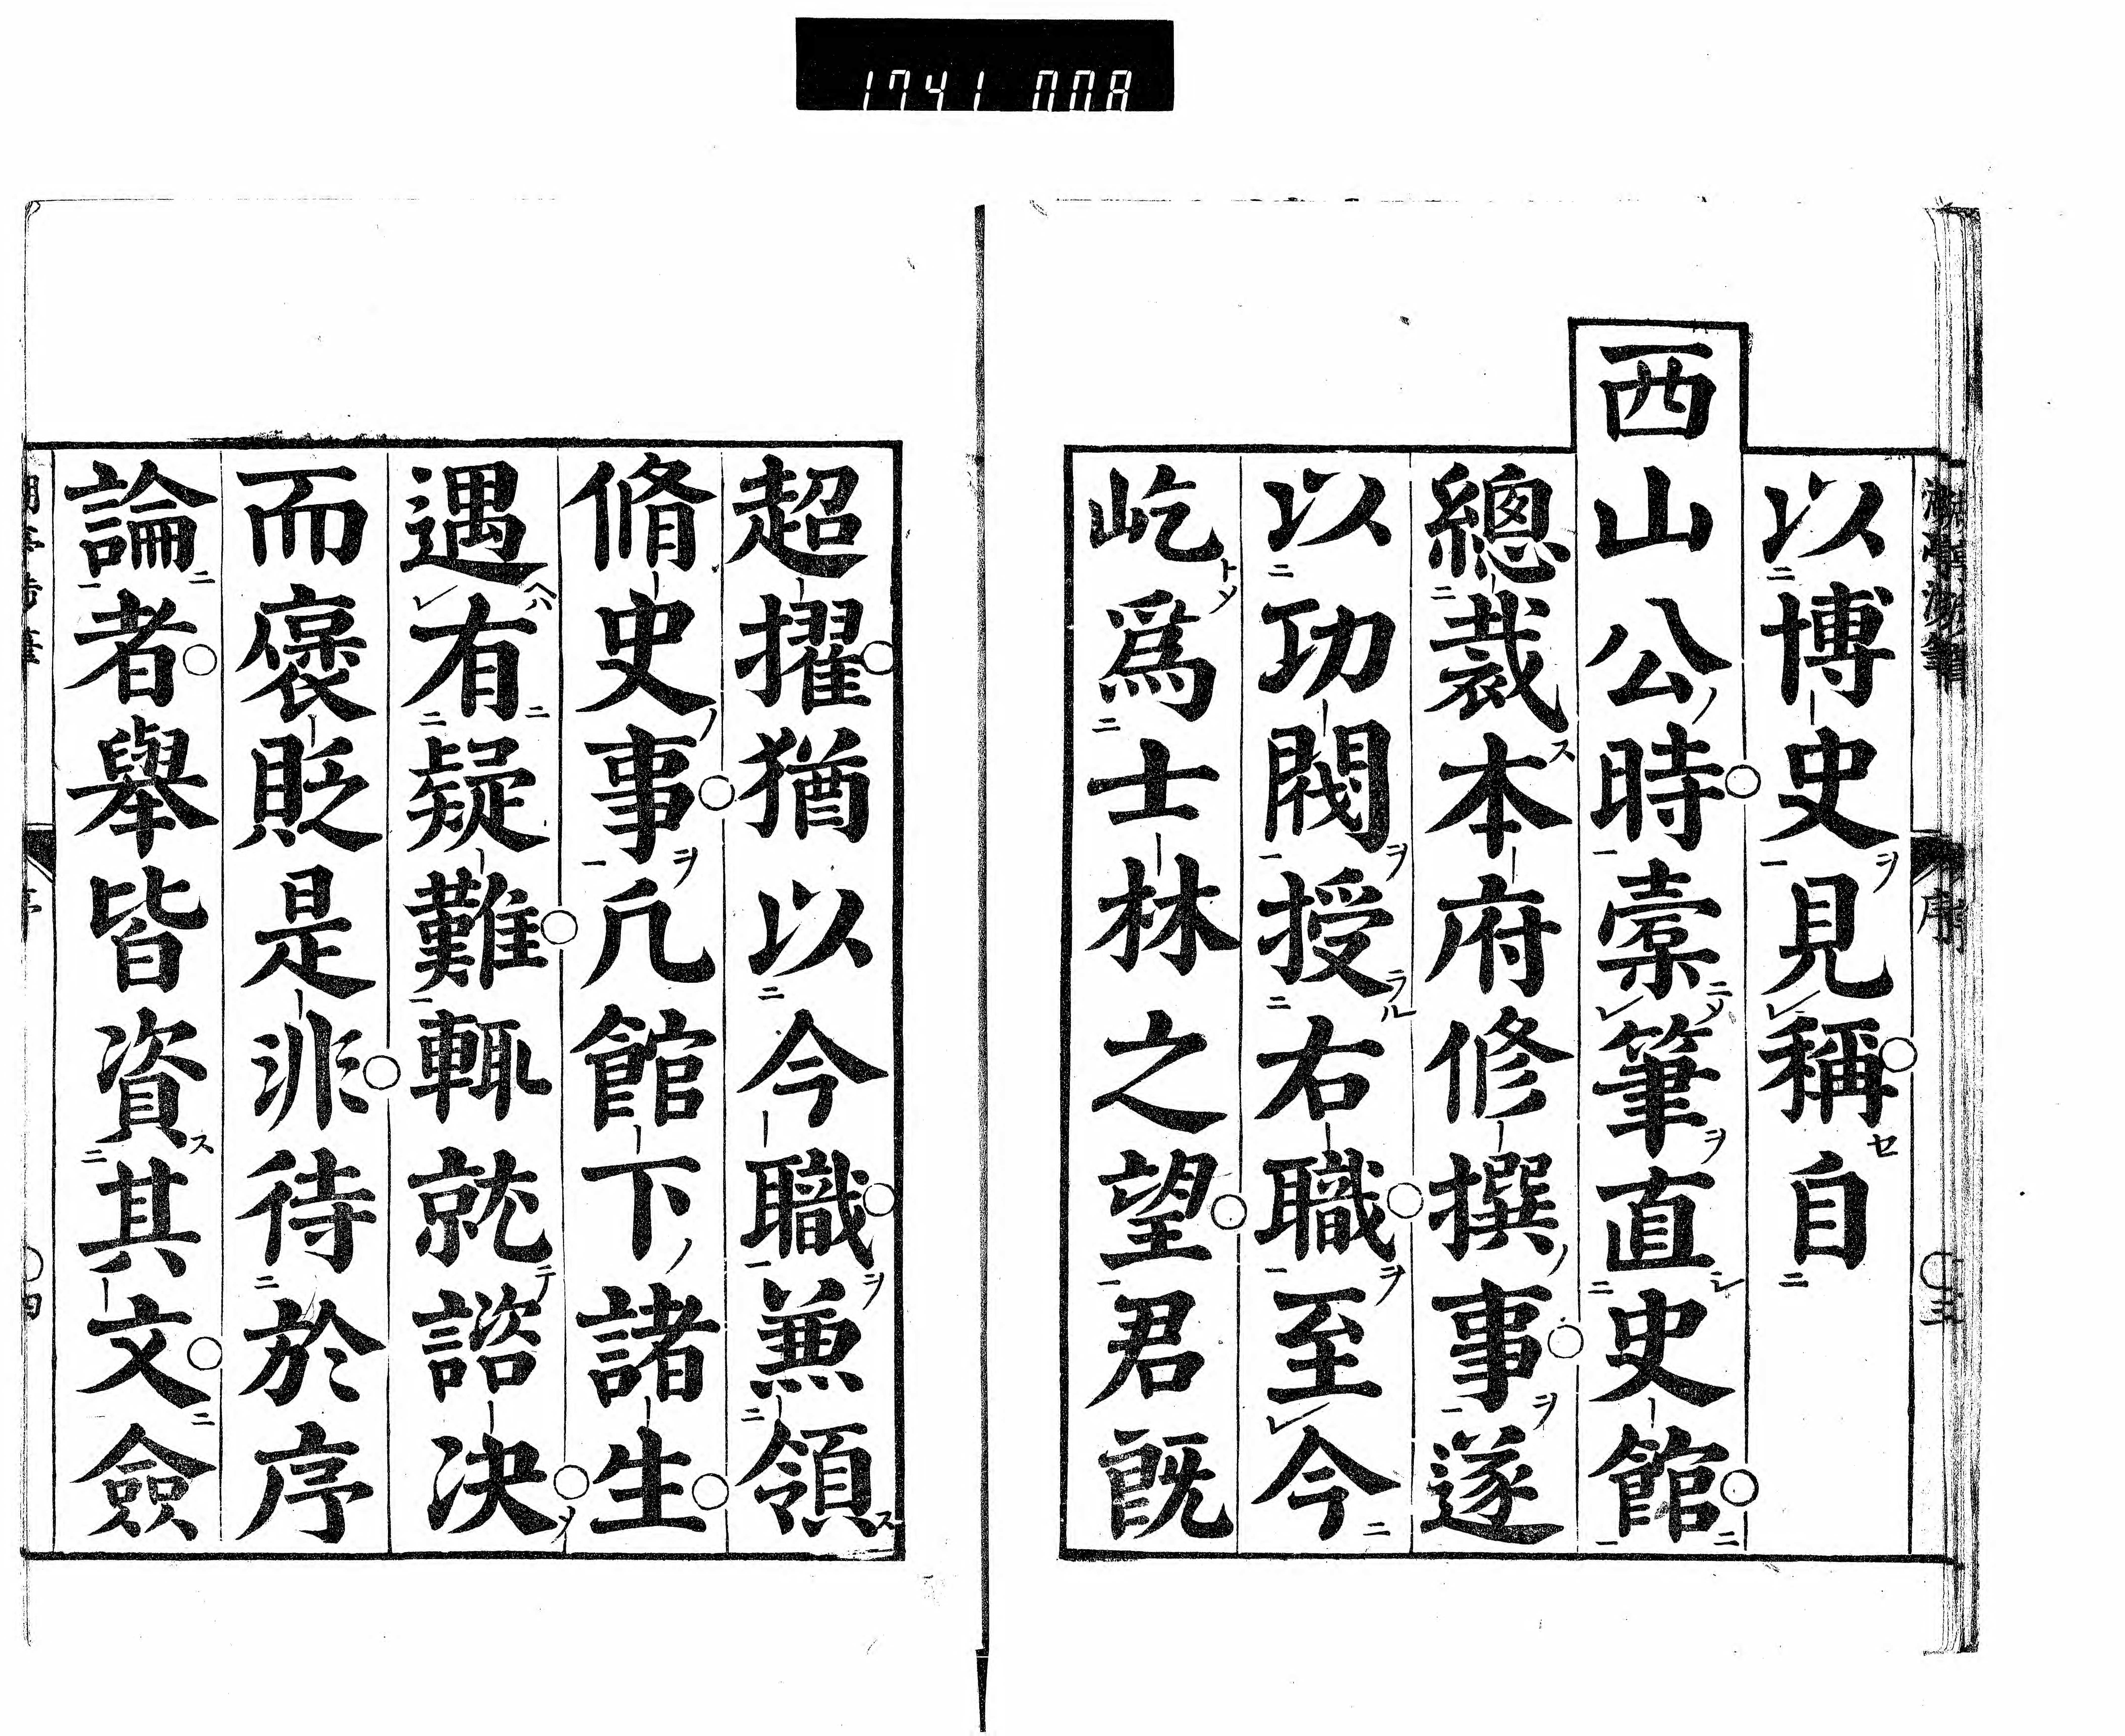 1741 008
以博史見稱自
西山公時槖筆直史館
總裁本府修撰事遂
以功閥授右職至今
屹爲士林之望君既
超擢猶以今職兼領
脩史事凢館下諸生
遇有疑難輒就諮決
而褒貶是非待於序
論者舉皆資其文僉
序
三
四